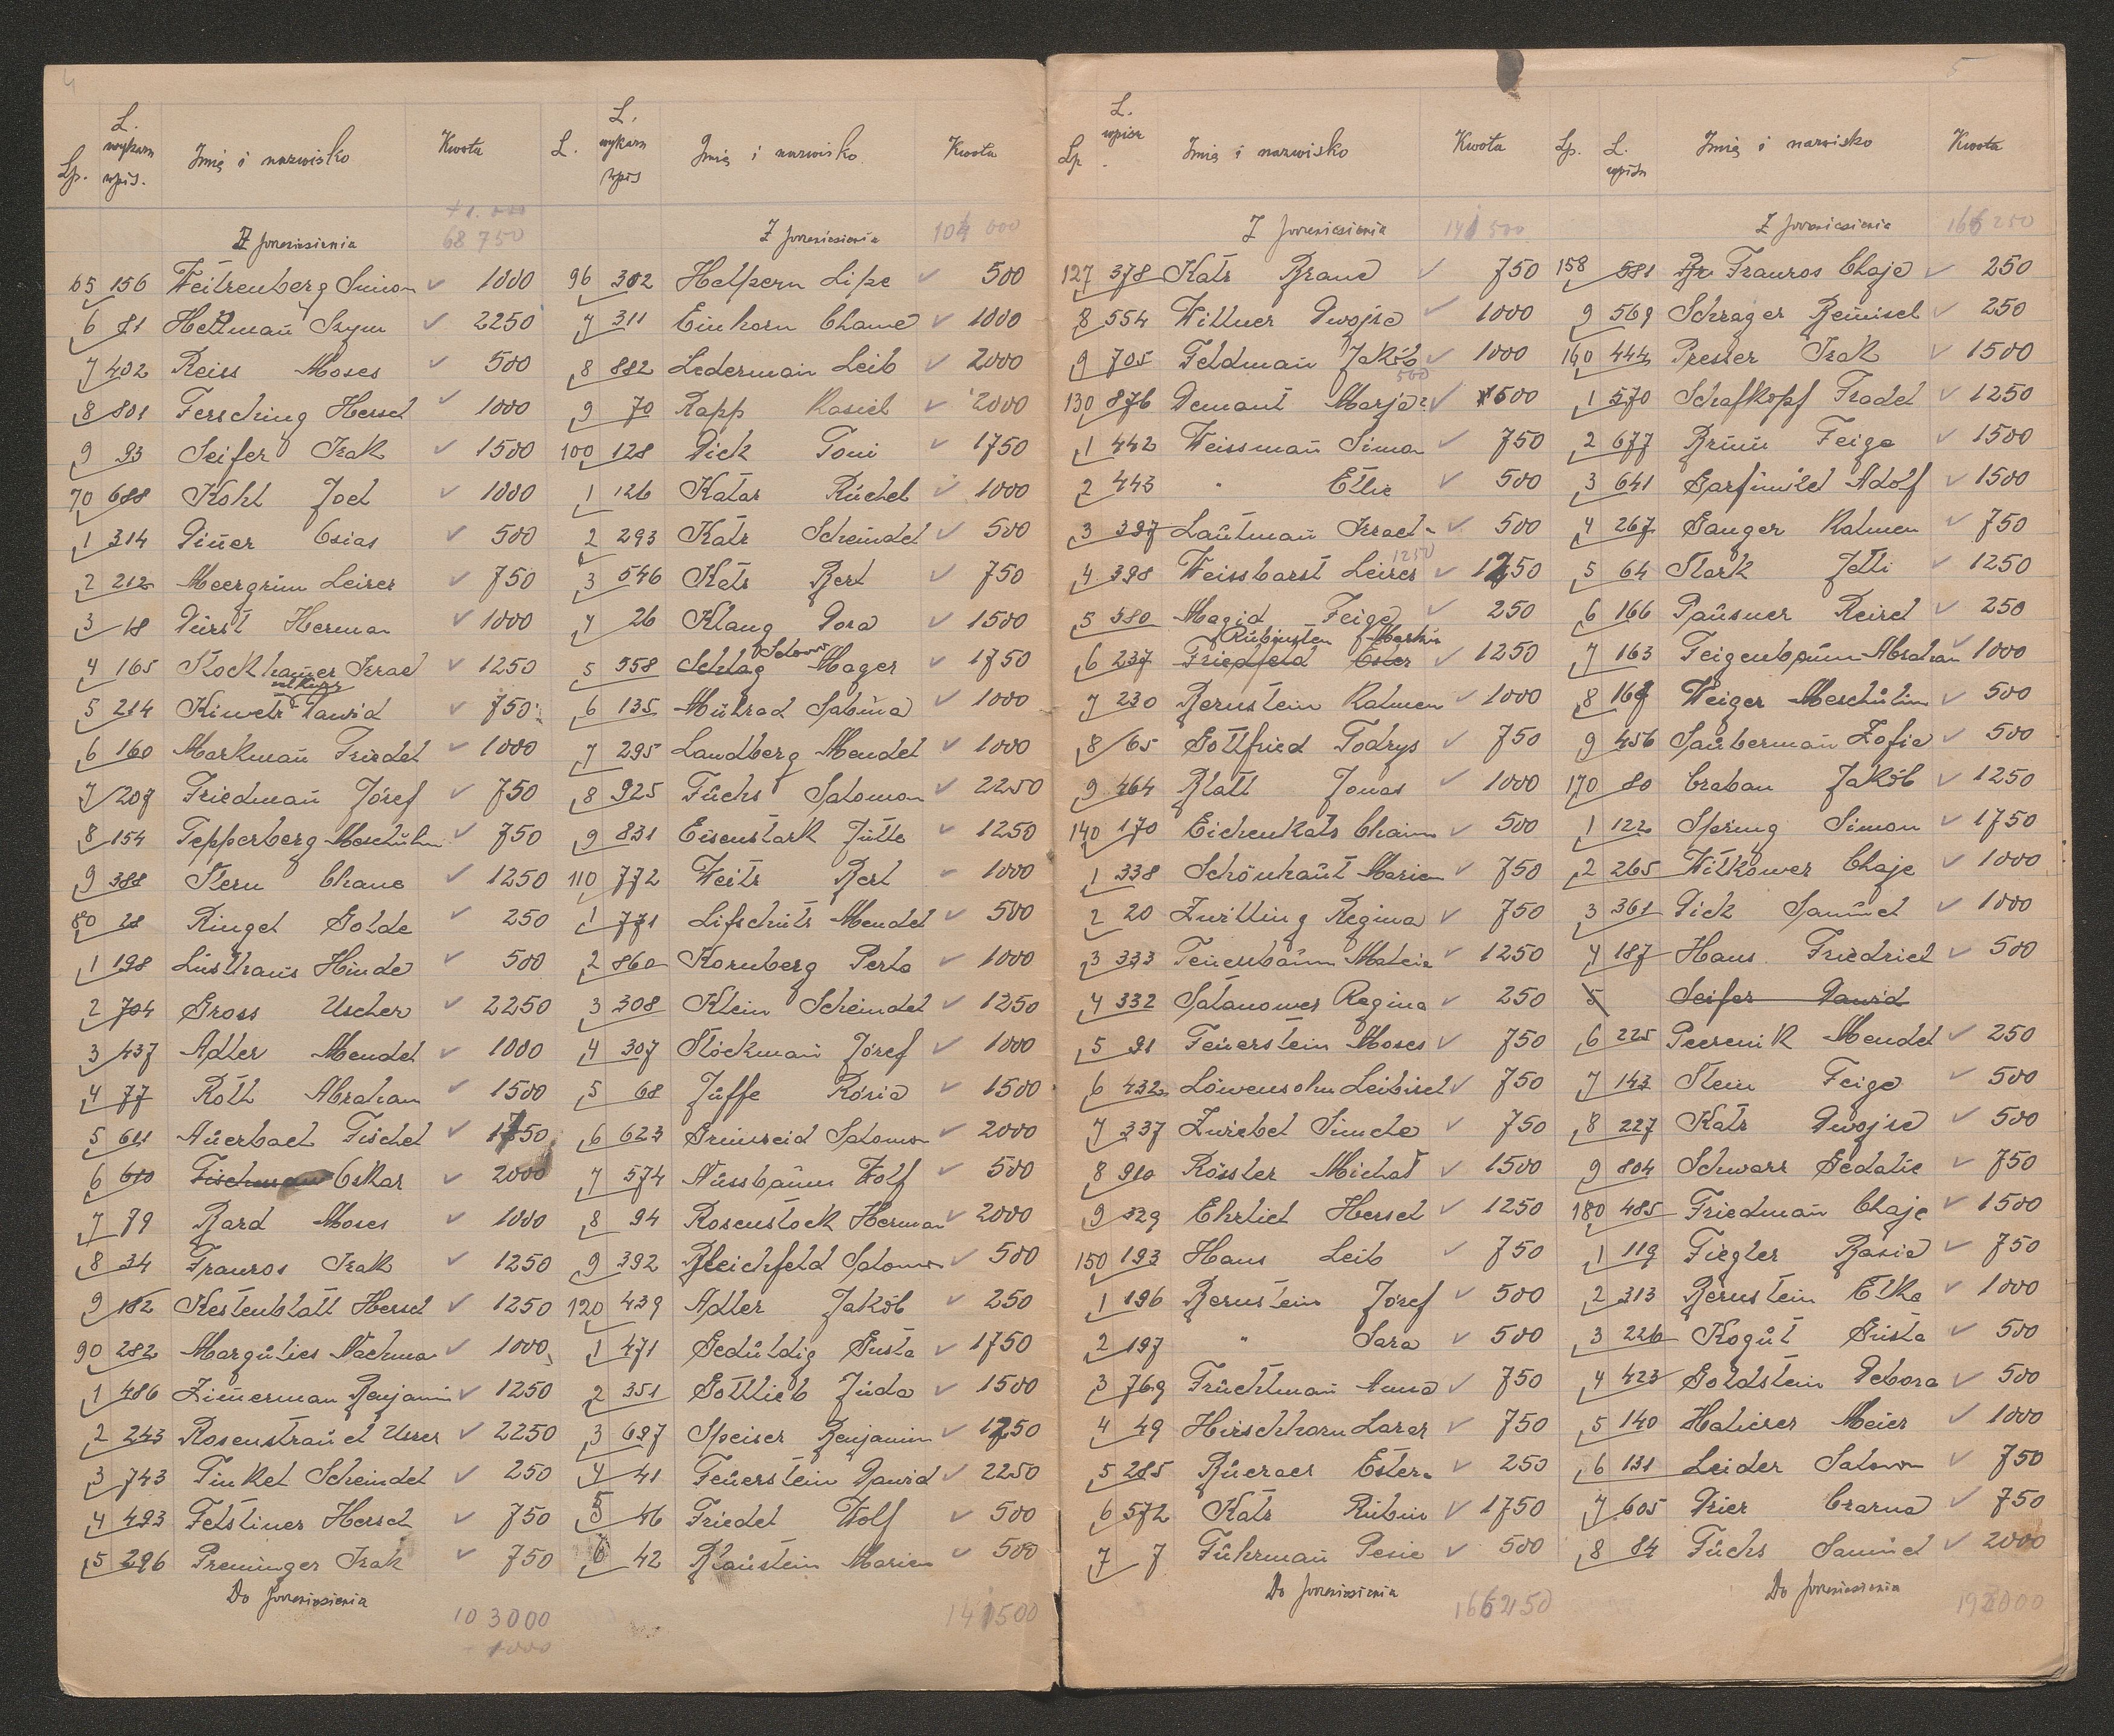 4
Lp. L. wykazu wpis. Imię i nazwisko Kwota
Z przeniesienia 68 750
65 156 Weitzenberg Simon 1000
6 81 Hettman Szym 2250
7 402 Reiss Moses 500
8 801 Fersching Hersch 1000
9 93 Seifer Izak 1500
70 688 Kohl Joel 1000
1 314 Diner Osias 500
2 212 Meergrün Leizer 750
3 18 Dürst Herman 1000
4 165 Stockhamer Izrael 1250
5 214 Kiwetz Dawid 750
6 160 Markman Friedel 1000
7 207 Friedman Józef 750
8 154 Tepperberg Meschulim 750
9 388 Stern Chane 1250
80 28 Ringel Golde 250
1 198 Lusthaus Hinde 500
2 704 Gross Uscher 2250
3 437 Adler Mendel 1000
4 77 Roth Abraham 1500
5 611 Auerbach Fischel 1750
6 610 Fischman Oskar 2000
7 79 Bard Moses 1000
8 34 Frauros Izak 1250
9 182 Kestenblatt Hersch 1250
90 282 Margulies Nachman 1000
1 486 Zimerman Benjamin 1250
2 243 Rosenstrauch Uszer 2250
3 743 Finkel Scheindel 250
4 493 Felsliner Hersch 750
5 296 Preminger Izak 750
Do przeniesienia 103000
1000
L. L. wykazu wpis Imię i nazwisko Kwota
Z przeniesienia 104 000
96 302 Helpern Lipe 500
7 311 Einhorn Chane 1000
8 882 Lederman Leib 2000
9 70 Rapp Kasiel 2000
100 128 Dick Toni 1750
1 126 Katz Ruchel 1000
2 293 Katz Scheindel 500
3 546 Katz Berl 750
4 26 Klang Dora 1500
Salomon
5 558 Schlag Mager 1750
6 135 Mühlrad Sabina 1000
7 295 Landberg Mendel 1000
8 925 Fuchs Salomon 2250
9 831 Eisenstark Jütte 1250
110 772 Weitz Berl 1000
1 771 Lifschütz Mendel 500
2 860 Kornberg Perla 1000
3 308 Klein Scheindel 1250
4 307 Stockman Józef 1000
5 68 Juffe Rózia 1500
6 623 Grünseid Salomon 2000
7 574 Nussbaum Wolf 500
8 94 Rosenstock Herman 2000
9 392 Bleichfeld Salomon 500
120 439 Adler Jakób 250
1 471 Geduldig Gusta 1750
2 351 Gottlieb Juda 1500
3 697 Speiser Benjamin 1250
4 41 Feuerstein Dawid 2250
5 46 Friedel Wolf 500
6 42 Blaustein Marien 500
141500
5
Lp L. wpisu Imię i nazwisko Kwota
Z przeniesienia 141 500
127 378 Katz Brane 750
8 554 Wittner Dwojre 1000
9 705 Feldman Jakób 1000
500
130 876 Demant Marja 1500
1 442 Weissman Simon 750
2 443 " Etlie 500
3 397 Lautman Izrael 500
1250
4 398 Weissbarst Leizer 1250
5 580 Magid Feige 250
Rubinstein Markus
6 237 Friedfeld Ester 1250
7 230 Bernstein Kalmen 1000
8 65 Gottfried Todrys 750
9 464 Blatt Jonas 1000
140 170 Eichenkatz Chaim 500
1 338 Schönhaut Marien 750
2 20 Zwilling Regina 750
3 333 Feuerbaum Malcie 1250
4 332 Salanower Regina 250
5 91 Feuerstein Moses 750
6 432 Löwensohn Leibisch 750
7 337 Zwiebel Simche 750
8 910 Rössler Michał 1500
9 329 Ehrlich Hersch 1250
150 193 Haus Leib 750
1 196 Bernstein Józef 500
2 197 " Sara 500
3 769 Fruchtman Anna 750
4 49 Hirschhorn Lazar 750
5 285 Ester 250
6 572 Katz Rubin 1750
7 7 Fuhrman Pesie 500
Do przeniesienia 166250
Lp. L. wpisu Imię i nazwisko Kwota
Z przeniesienia 166 250
158 581 Frauros Chaje 250
9 569 Schrager Beinisch 250
160 444 Presser Izak 1500
1 570 Schafkopf Fradel 1250
2 677 Brün Feige 1500
3 641 Garfunkel Adolf 1500
4 267 Sanger Kalmen 750
5 64 Stark Jetti 1250
6 166 Pausner Reizel 250
7 163 Feigenbaum Abraham 1000
8 169 Weiger Meschulim 500
9 456 Sauberman Zofie 500
170 80 Craban Jakób 1250
1 122 Spring Simon 1750
2 265 Witkower Chaje 1000
3 361 Dick Samuel 1000
4 187 Haus Friedrich 500
5 Seifer Dawid
6 225 Peerenik Mendel 250
7 143 Stein Feige 500
8 227 Katz Dwojre 500
9 804 Schwarz Gedalie 750
180 485 Friedman Chaje 1500
1 119 Fiegler Basie 750
2 313 Bernstein Elka 1000
3 226 Kogut Gusta 500
4 423 Goldstein Debora 500
5 140 Haliczer Meier 1000
6 131 Leider Salomon 750
7 605 Drier Czarna 750
8 84 Fuchs Samuel 2000
Do przeniesienia 192000